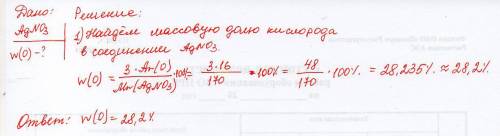 Дано:
AgNO3
W(O)-?
Решение:
1) Найдём массовую долю кислорода
в соединении AgNO3.
W(O) = 3·Ar(O) / Mr(AgNO3) ·100% = 3·16 / 170 · 100% = 48 / 170 · 100% = 28,235% ≈ 28,2%
Ответ: W(O) = 28,2%